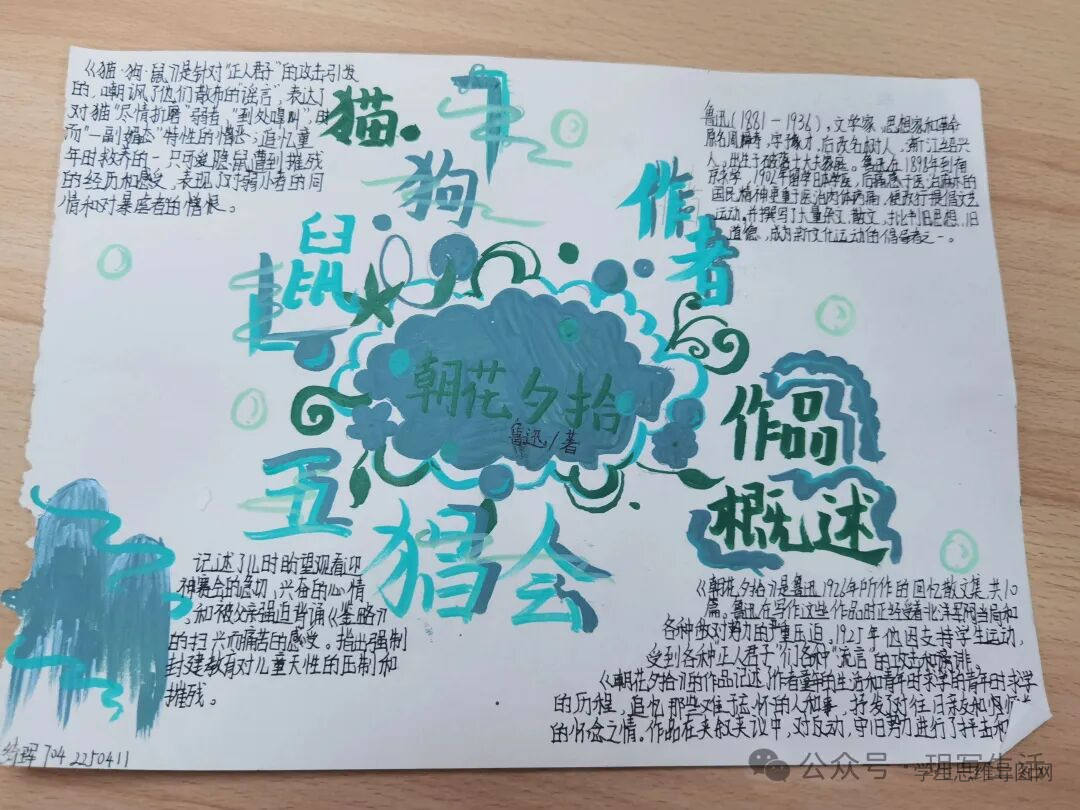 《猫·狗·鼠》是针对“正人君子”的攻击引发
的，嘲讽了他们散布的“谣言”，表达了
对猫“尽情折磨”弱者，“到处嗥叫”，时
而“一副媚态”特性的憎恶；追忆童
年时救养的一只可爱隐鼠遭到摧残
的经历和感受，表现了对弱小者的同
情和对暴虐者的憎恨。
猫·
狗
鼠
作者
鲁迅(1881-1936)，文学家、思想家和革命
原名周樟寿，字豫才，后改名树人，浙江绍兴
人。出生于破落士大夫家庭。鲁迅在1898年到南
京求学，1902年留学日本学医，后痛感于医治麻木的
国民精神更重于医治肉体病痛，便改行提倡文艺
运动，并撰写了大量杂文、散文，批判旧思想、旧
道德，成为新文化运动的倡导者之一。
朝花夕拾
鲁迅/著
作品
概述
五猖会
记述了儿时盼望观看迎
神赛会的急切、兴奋的心情，
和被父亲强迫背诵《鉴略》
的扫兴而痛苦的感受。指出强制
封建教育对儿童天性的压制和
摧残。
《朝花夕拾》是鲁迅1926年所作的回忆散文集，共10
篇。鲁迅在写作这些作品时正经受着北洋军阀当局和
各种敌对势力的严重压迫，1925年他因支持学生运动，
受到各种“正人君子”们各种“流言”的攻击和
《朝花夕拾》的作品记述了作者童年的生活和青年时求学的青年时求学
的历程，追忆那些难于忘怀的人和事，抒发了对往日亲友和
的怀念之情。作品在夹叙夹议中，对反动、守旧势力进行了抨击和
704 2250411
公众号
学生思维导图网